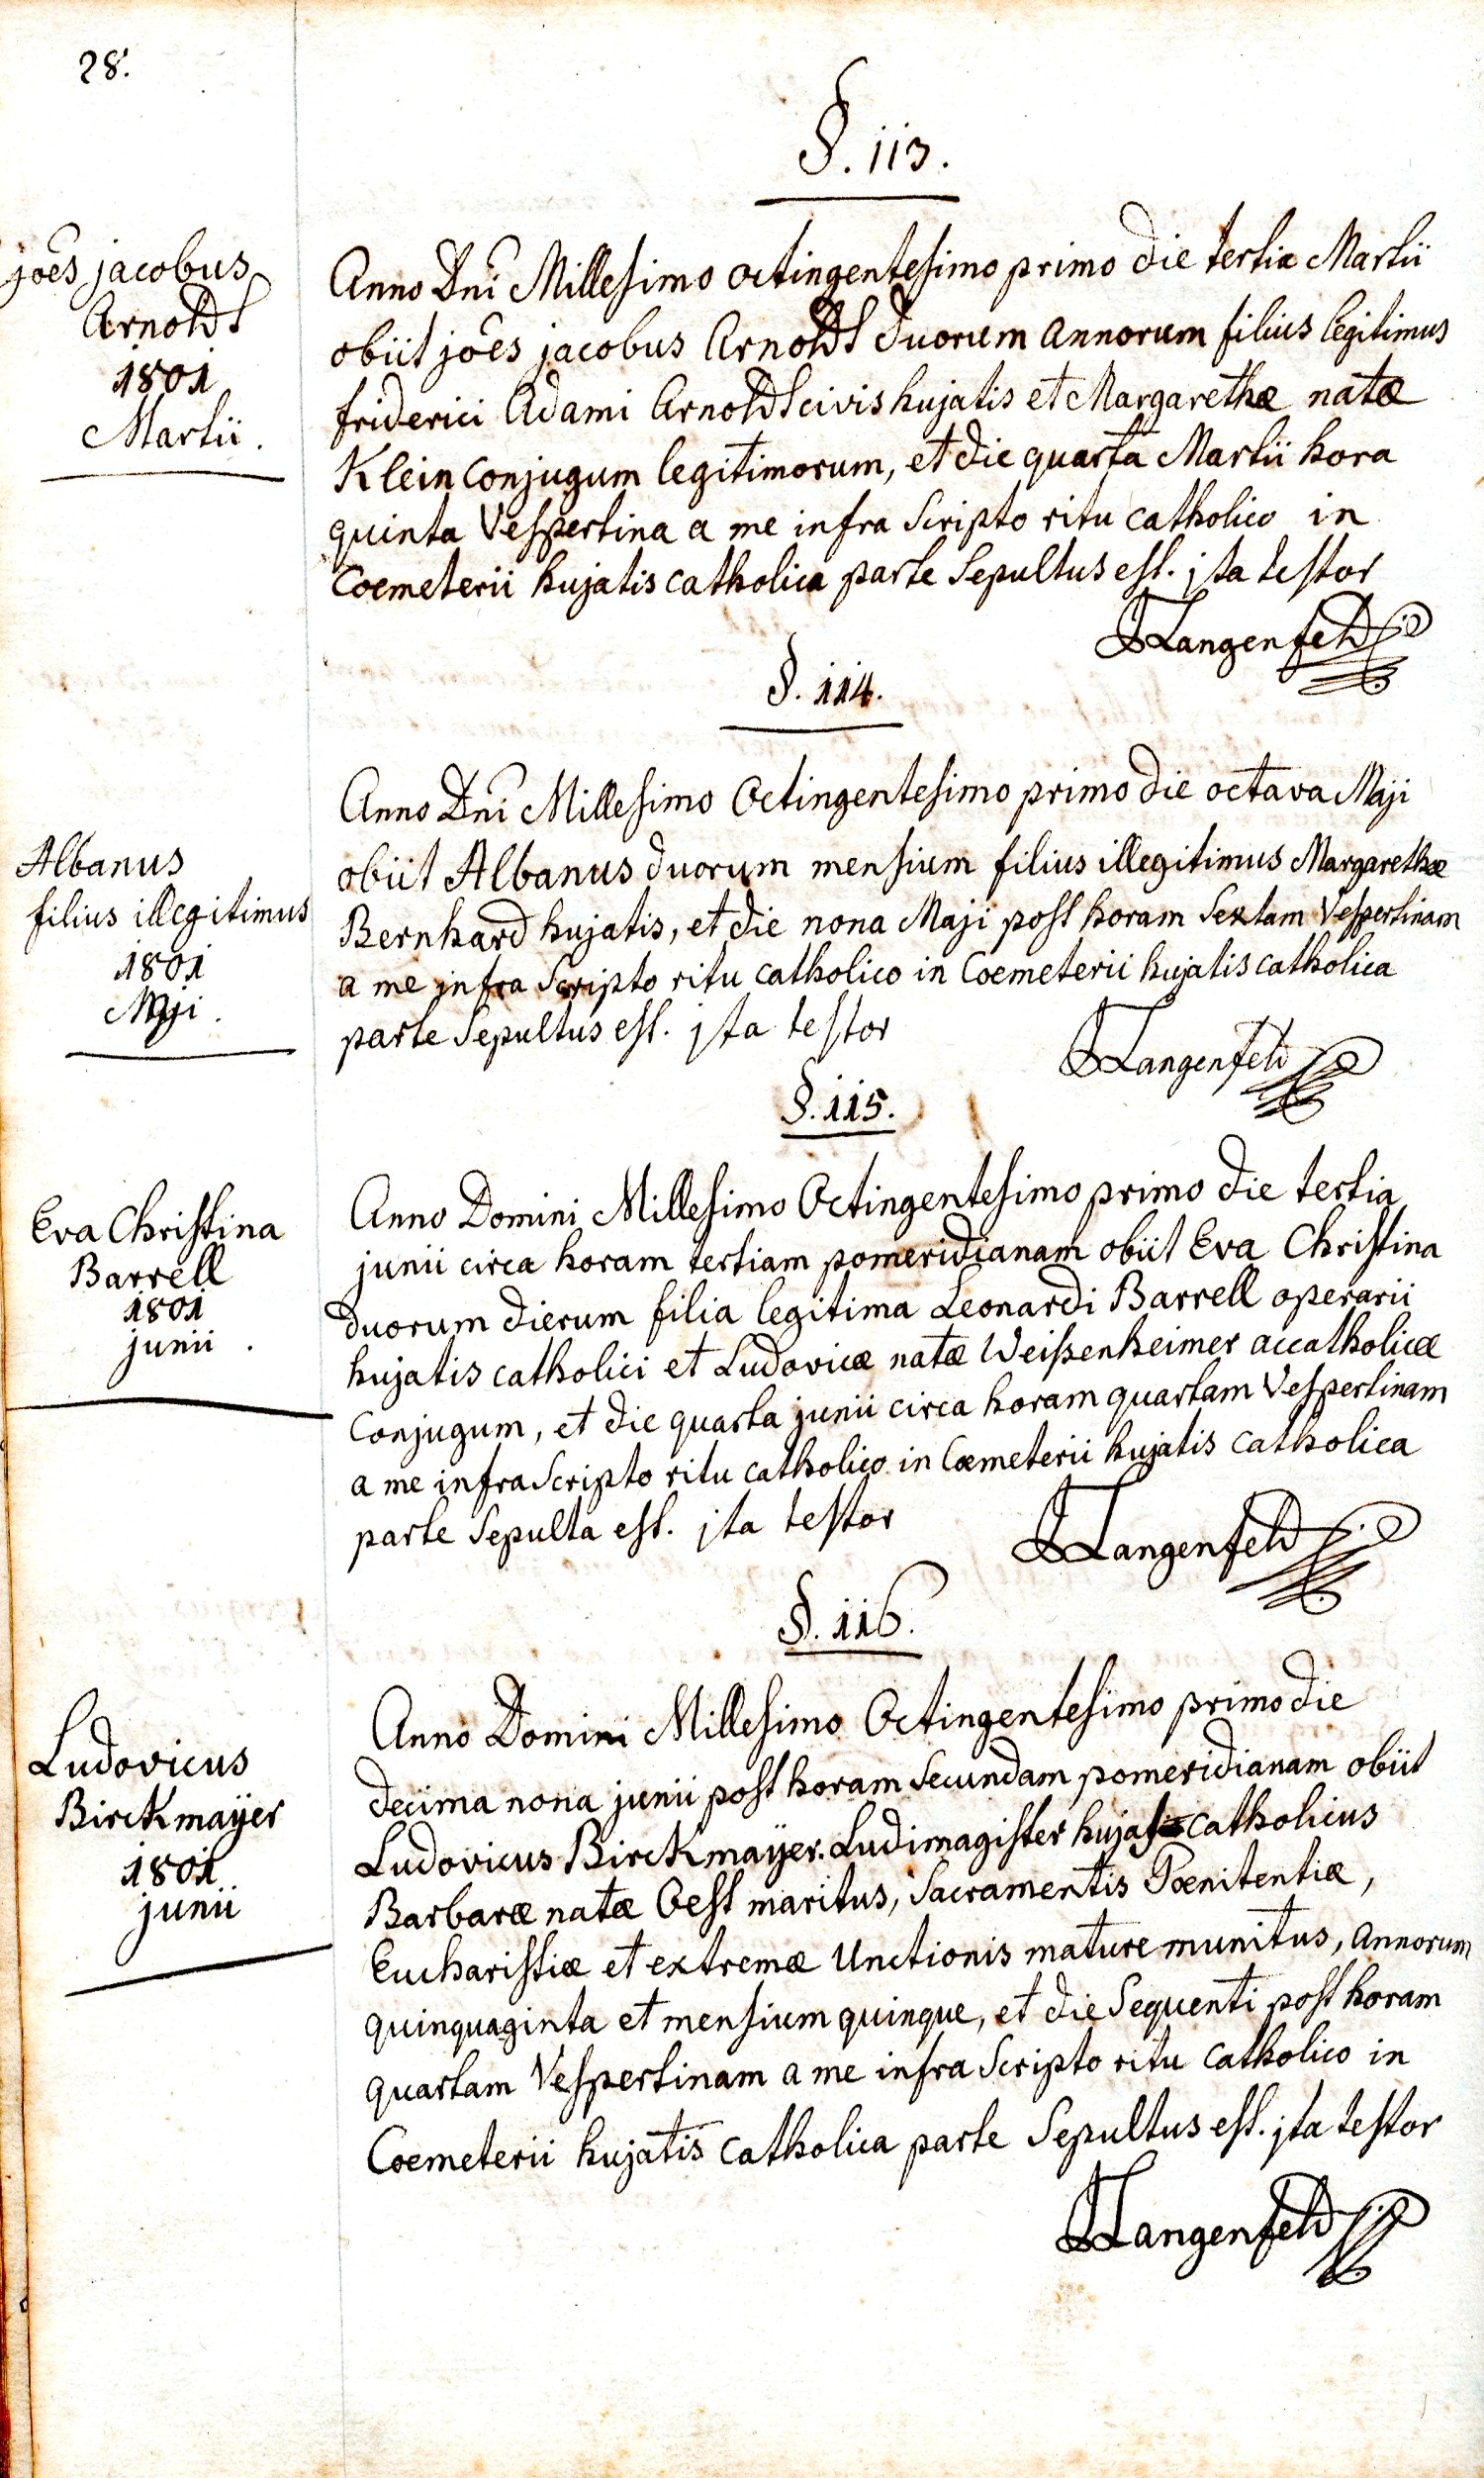 28.
§. 113.
joês jacobus
Arnoldt
1801
Martii.
Anno Dni Millesimo octingentesimo primo die tertia Martii
obiit joês jacobus Arnoldt duorum annorum filius legitimus
friderici Adami Arnoldt civis hujatis et Margarethæ natæ
Klein Conjugum legitimorum, et die quarta Martii hora
quinta Vespertina a me infra Scripto ritu catholico in
Coemeterii hujatis catholica parte Sepultus est. jta testor
JLangenfeld
§. 114.
Albanus
filius illegitimus
1801
Maji.
Anno Dni Millesimo Octingentesimo primo die octava Maji
obiit Albanus duorum mensium filius illegitimus Margarethæ
Bernhard hujatis, et die nona Maji post horam Sextam Vespertinam
a me infra Scripto ritu catholico in Coemeterii hujatis catholica
parte Sepultus est. jta testor
JLangenfeld
§. 115.
Eva Christina
Barrell
1801
junii.
Anno Domini Millesimo Octingentesimo primo die tertia
junii circa horam tertiam pomeridianam obiit Eva Christina
duorum dierum filia legitima Leonardi Barrell operarii
hujatis catholici et Ludovicæ natæ Weißenheimer accatholicæ
Conjugum, et die quarta junii circa horam quartam Vespertinam
a me infra Scripto ritu catholico in Cœmeterii hujatis catholica
parte Sepulta est. jta testor
JLangenfeld
§. 116.
Ludovicus
Birckmaÿer
1801
junii
Anno Domini Millesimo Octingentesimo primo die
decima nona junii post horam Secundam pomeridianam obiit
Ludovicus Birckmaÿer. Ludimagister hujatis catholicus
Barbaræ natæ Oest maritus, Sacramentis Pœnitentiæ,
Eucharistiæ et extremæ Unctionis mature munitus, annorum
quinquaginta et mensium quinque, et die Sequenti post horam
quartam Vespertinam a me infra Scripto ritu catholico in
Coemeterii hujatis catholica parte Sepultus est. jta testor
JLangenfeld